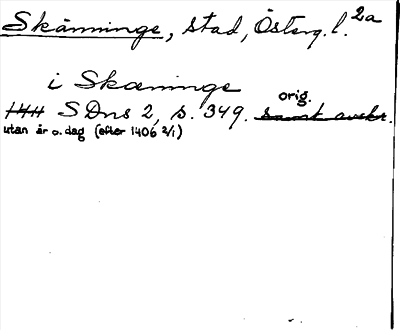 Skänninge, stad, Österg. l. 2a
i Skæninge
1411 SDns 2, s. 349. orig. samt avskr.
utan år o. dag (efter 1406 2/1)